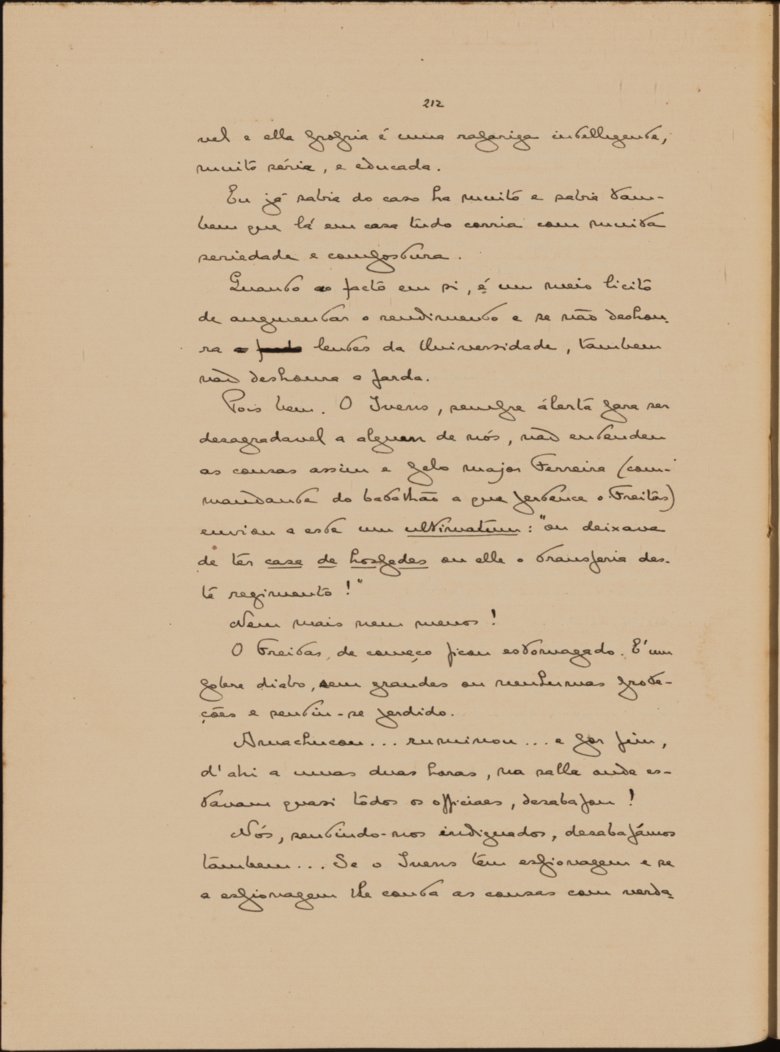 212
vel e ella propria é uma rapariga intelligente,
muito séria, e educada.
Eu já sabia do caso ha muito e sabia tam-
bem que lá em casa tudo corria com muita
seriedade e compostura.
Quanto ao facto em si, é um meio licito
de augmentar o rendimento e se não deshon-
ra lentes da Universidade, tambem
não deshonra a farda.
Pois bem. O Ivens, sempre álerta para ser
desagradavel a alguem de nós, não entendeu
as cousas assim e pelo major Ferreira (com-
mandante do batalhão a que pertence o Freitas)
enviou a este um ultimatum: "ou deixava
de ter casa de hospedes ou elle o transferia des-
te regimento!"
Nem mais nem menos!
O Freitas, de começo ficou estomagado. E' um
pobre diabo, sem grandes ou nenhumas prote-
ções e sentiu-se perdido.
Amachucou... ruminou... e por fim,
d'ahi a umas duas horas, na salla onde es-
tavam quasi tôdos os officiaes, desabafou!
Nós, sentindo-nos indignados, desabafámos
tambem... Se o Ivens tem espionagem e se
a espionagem lhe conta as cousas com verda-